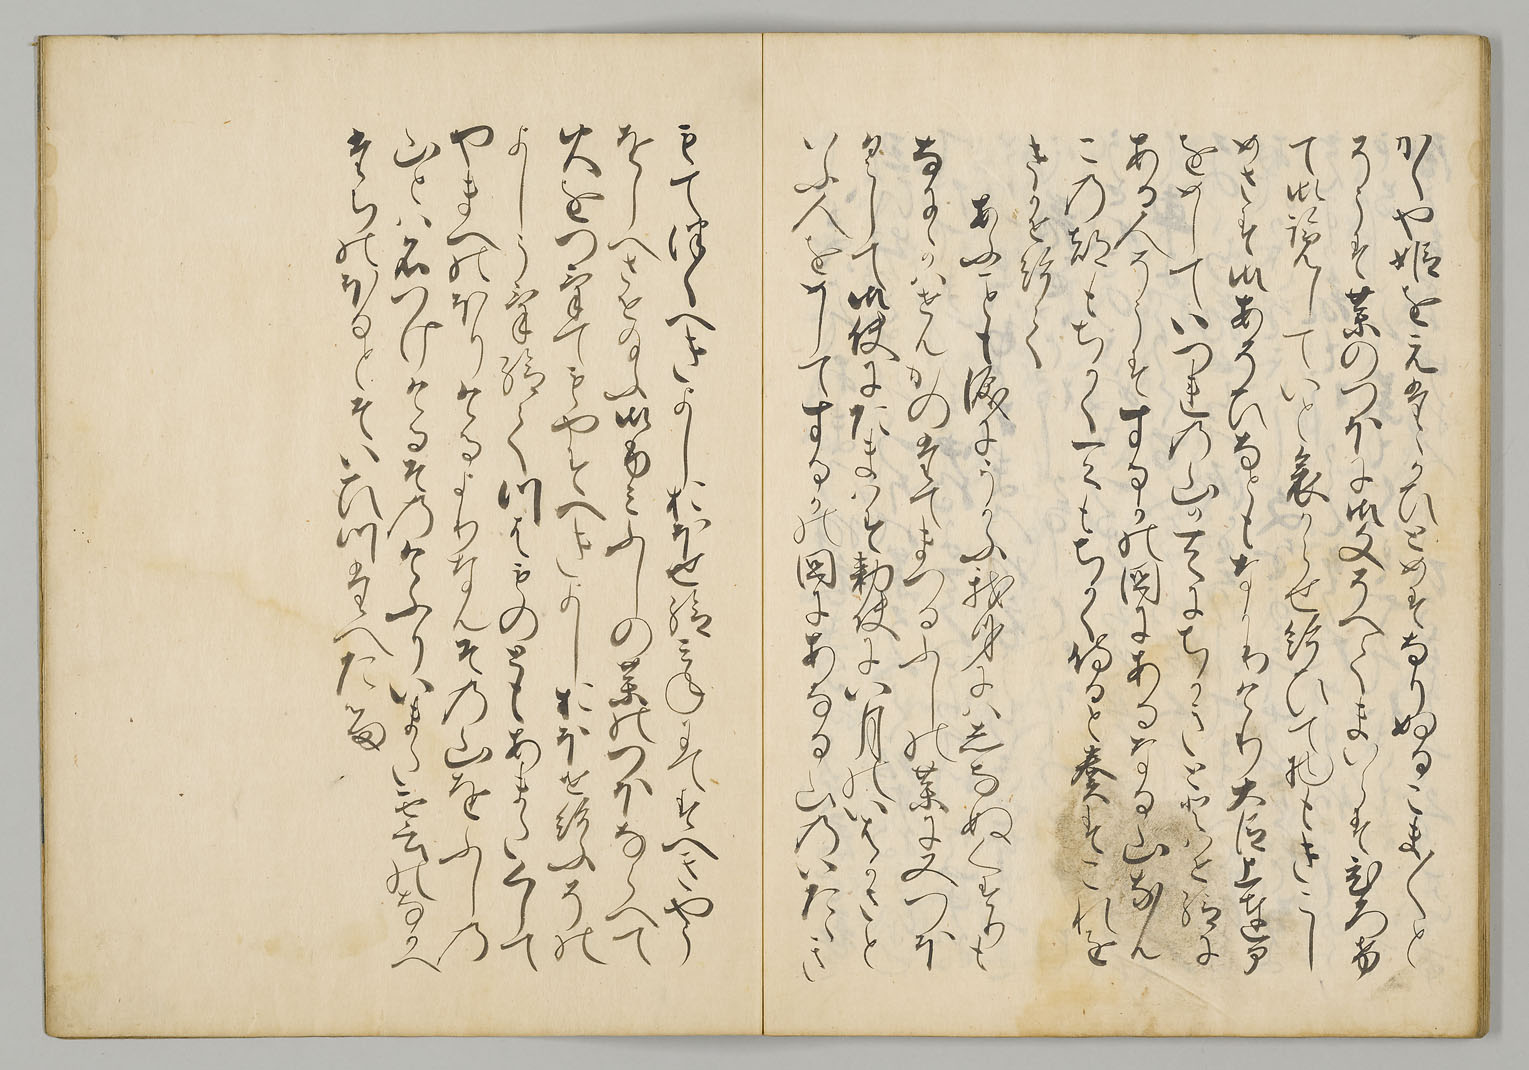 かくや姫をえたゝかひとめす成りぬるこま〳〵と
そうす薬のつほに御文そへてまいらすひろけ
て御覧していと哀からせ給ひて物もきこし
めさす御あそひなともなかりけり大臣上達部
をめしていつれの山か天にちかきととはせ給に
ある人そうすするかの国にあるなる山なん
この都もちかく天もちかく侍ると奏すこれを
きかせ給て
あふことも涙にうかふ我身にはしなぬくすりも
なにゝかはせんかのたてまつるふしの薬に又つほ
くして御使にたまはす勅使には月のいはかさと
いふ人をめしてするかの国にあなる山のいたゝき
もてつくへきよしおほせ給みねにてすへきやう
をしへさせたまふ御ふみふしの薬のつほならへて
火をつけてもやすへきよしおほせ給ふその
よしうけ給てつはものともあまたくして
やまへのほりけるよりなんその山をふしの
山とは名つけけるそのけふりいまた雲のなかへ
たちのほるとそいひつたへた留